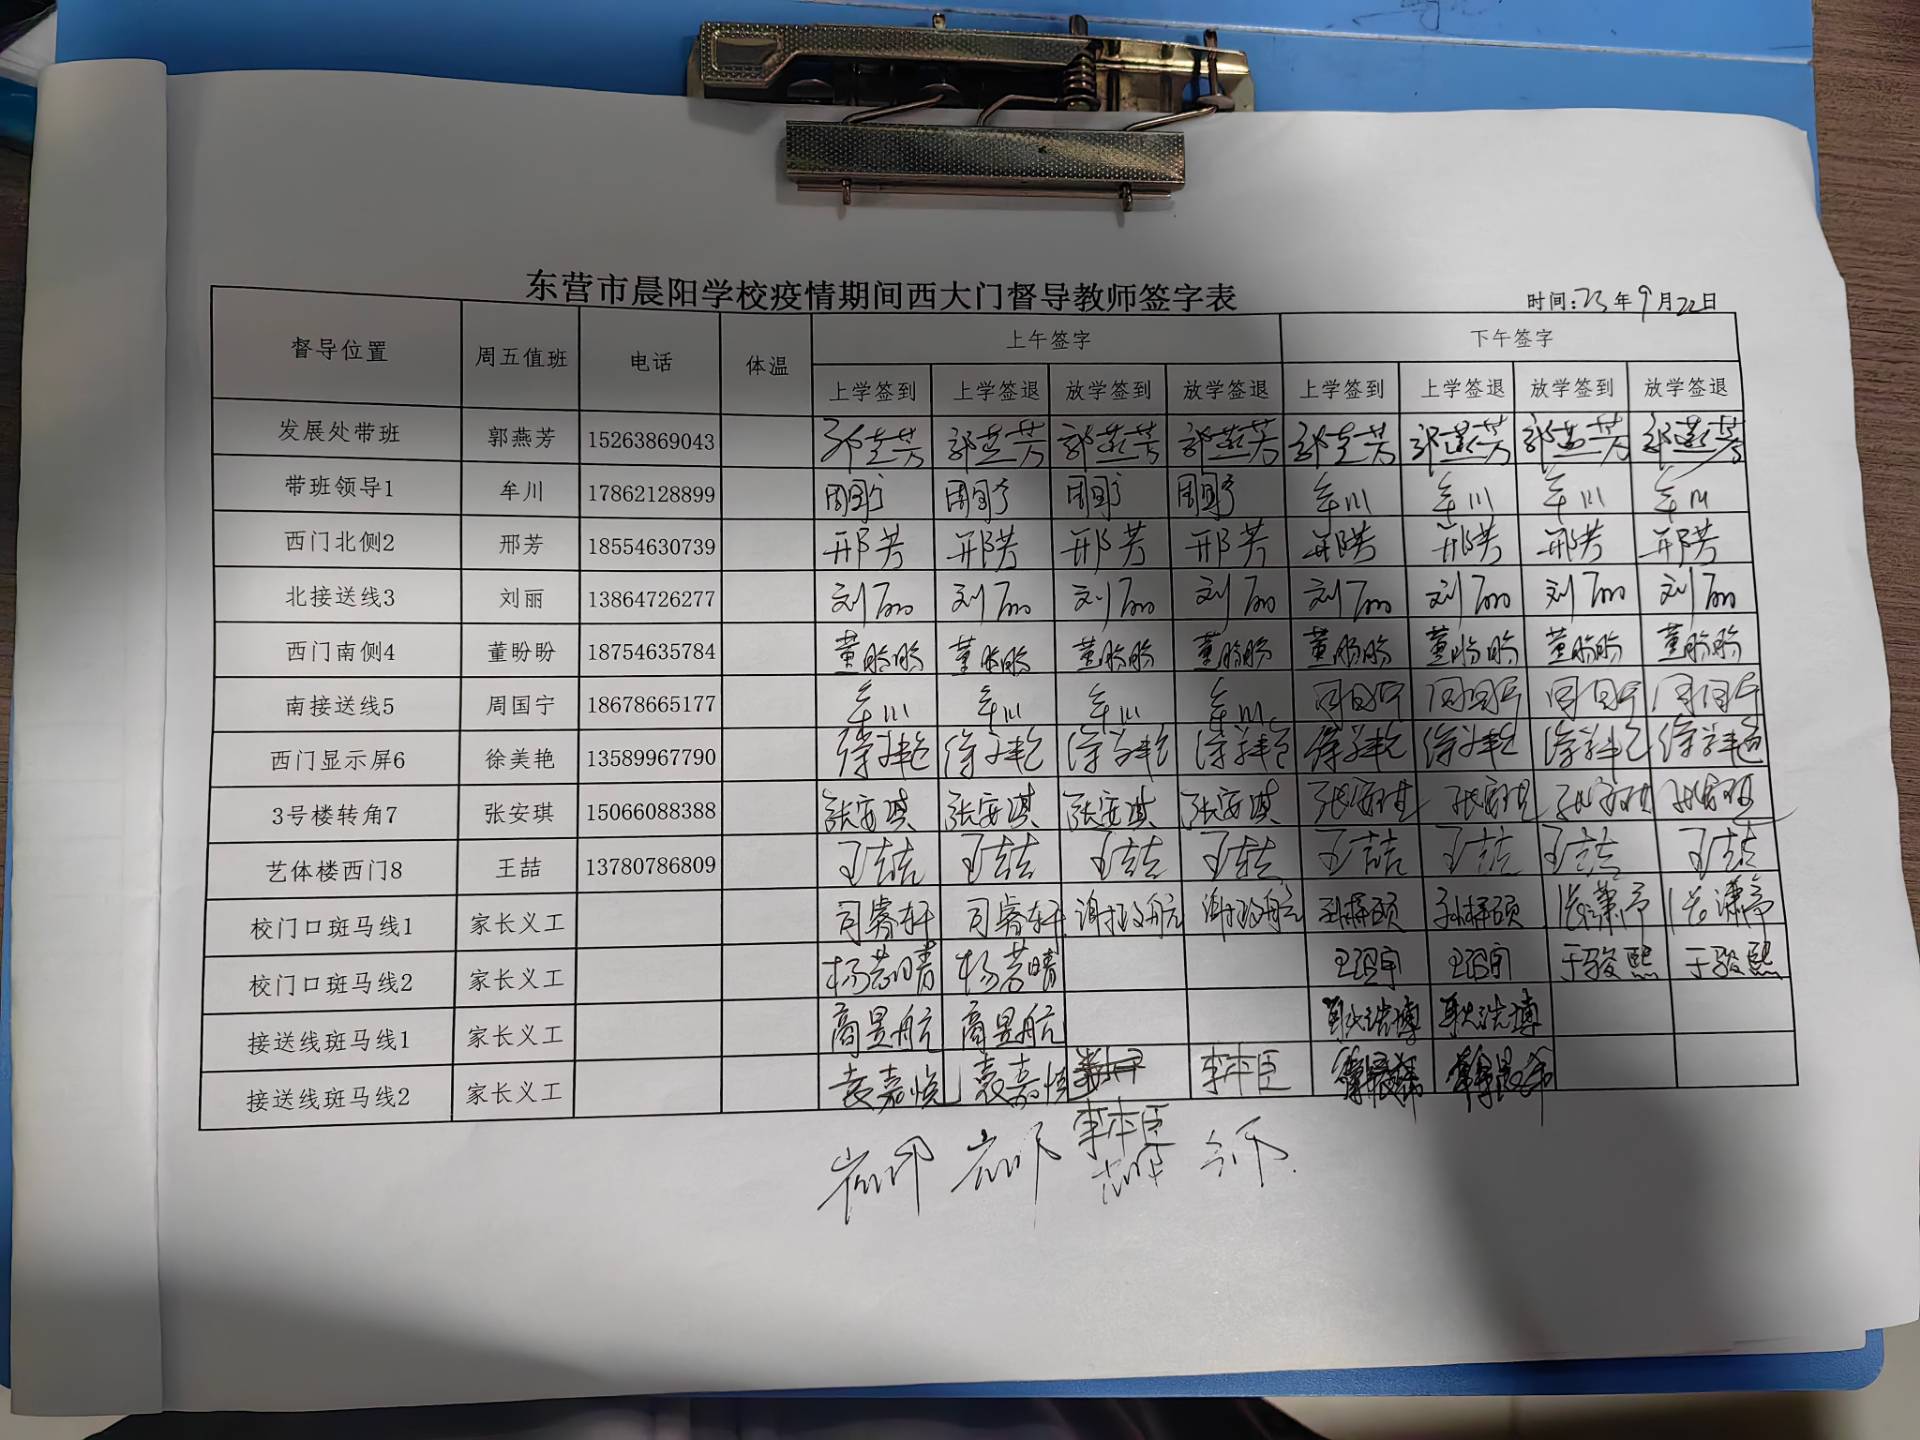 东营市晨阳学校疫情期间西大门督导教师签字表
时间:23年9月22日
督导位置 周五值班 电话 体温 上午签字 下午签字
上学签到 上学签退 放学签到 放学签退 上学签到 上学签退 放学签到 放学签退
发展处带班 郭燕芳 15263869043 郭燕芳 郭燕芳 郭燕芳 郭燕芳 郭燕芳 郭燕芳 郭燕芳 郭燕芳
带班领导1 牟川 17862128899 周国宁 周国宁 周国宁 周国宁 牟川 牟川 牟川 牟川
西门北侧2 邢芳 18554630739 邢芳 邢芳 邢芳 邢芳 邢芳 邢芳 邢芳 邢芳
北接送线3 刘丽 13864726277 刘丽 刘丽 刘丽 刘丽 刘丽 刘丽 刘丽 刘丽
西门南侧4 董盼盼 18754635784 董盼盼 董盼盼 董盼盼 董盼盼 董盼盼 董盼盼 董盼盼 董盼盼
南接送线5 周国宁 18678665177 牟川 牟川 牟川 牟川 周国宁 周国宁 周国宁 周国宁
西门显示屏6 徐美艳 13589967790 徐美艳 徐美艳 徐美艳 徐美艳 徐美艳 徐美艳 徐美艳 徐美艳
3号楼转角7 张安琪 15066088388 张安琪 张安琪 张安琪 张安琪 张安琪 张安琪 张安琪 张安琪
艺体楼西门8 王喆 13780786809 王喆 王喆 王喆 王喆 王喆 王喆 王喆 王喆
校门口斑马线1 家长义工 司睿轩 司睿轩
校门口斑马线2 家长义工 杨若晴 杨若晴 于骏熙 于骏熙
接送线斑马线1 家长义工 商昱航 商昱航 耿浩博 耿浩博
接送线斑马线2 家长义工 袁嘉悦 袁嘉悦 李本臣
李本臣